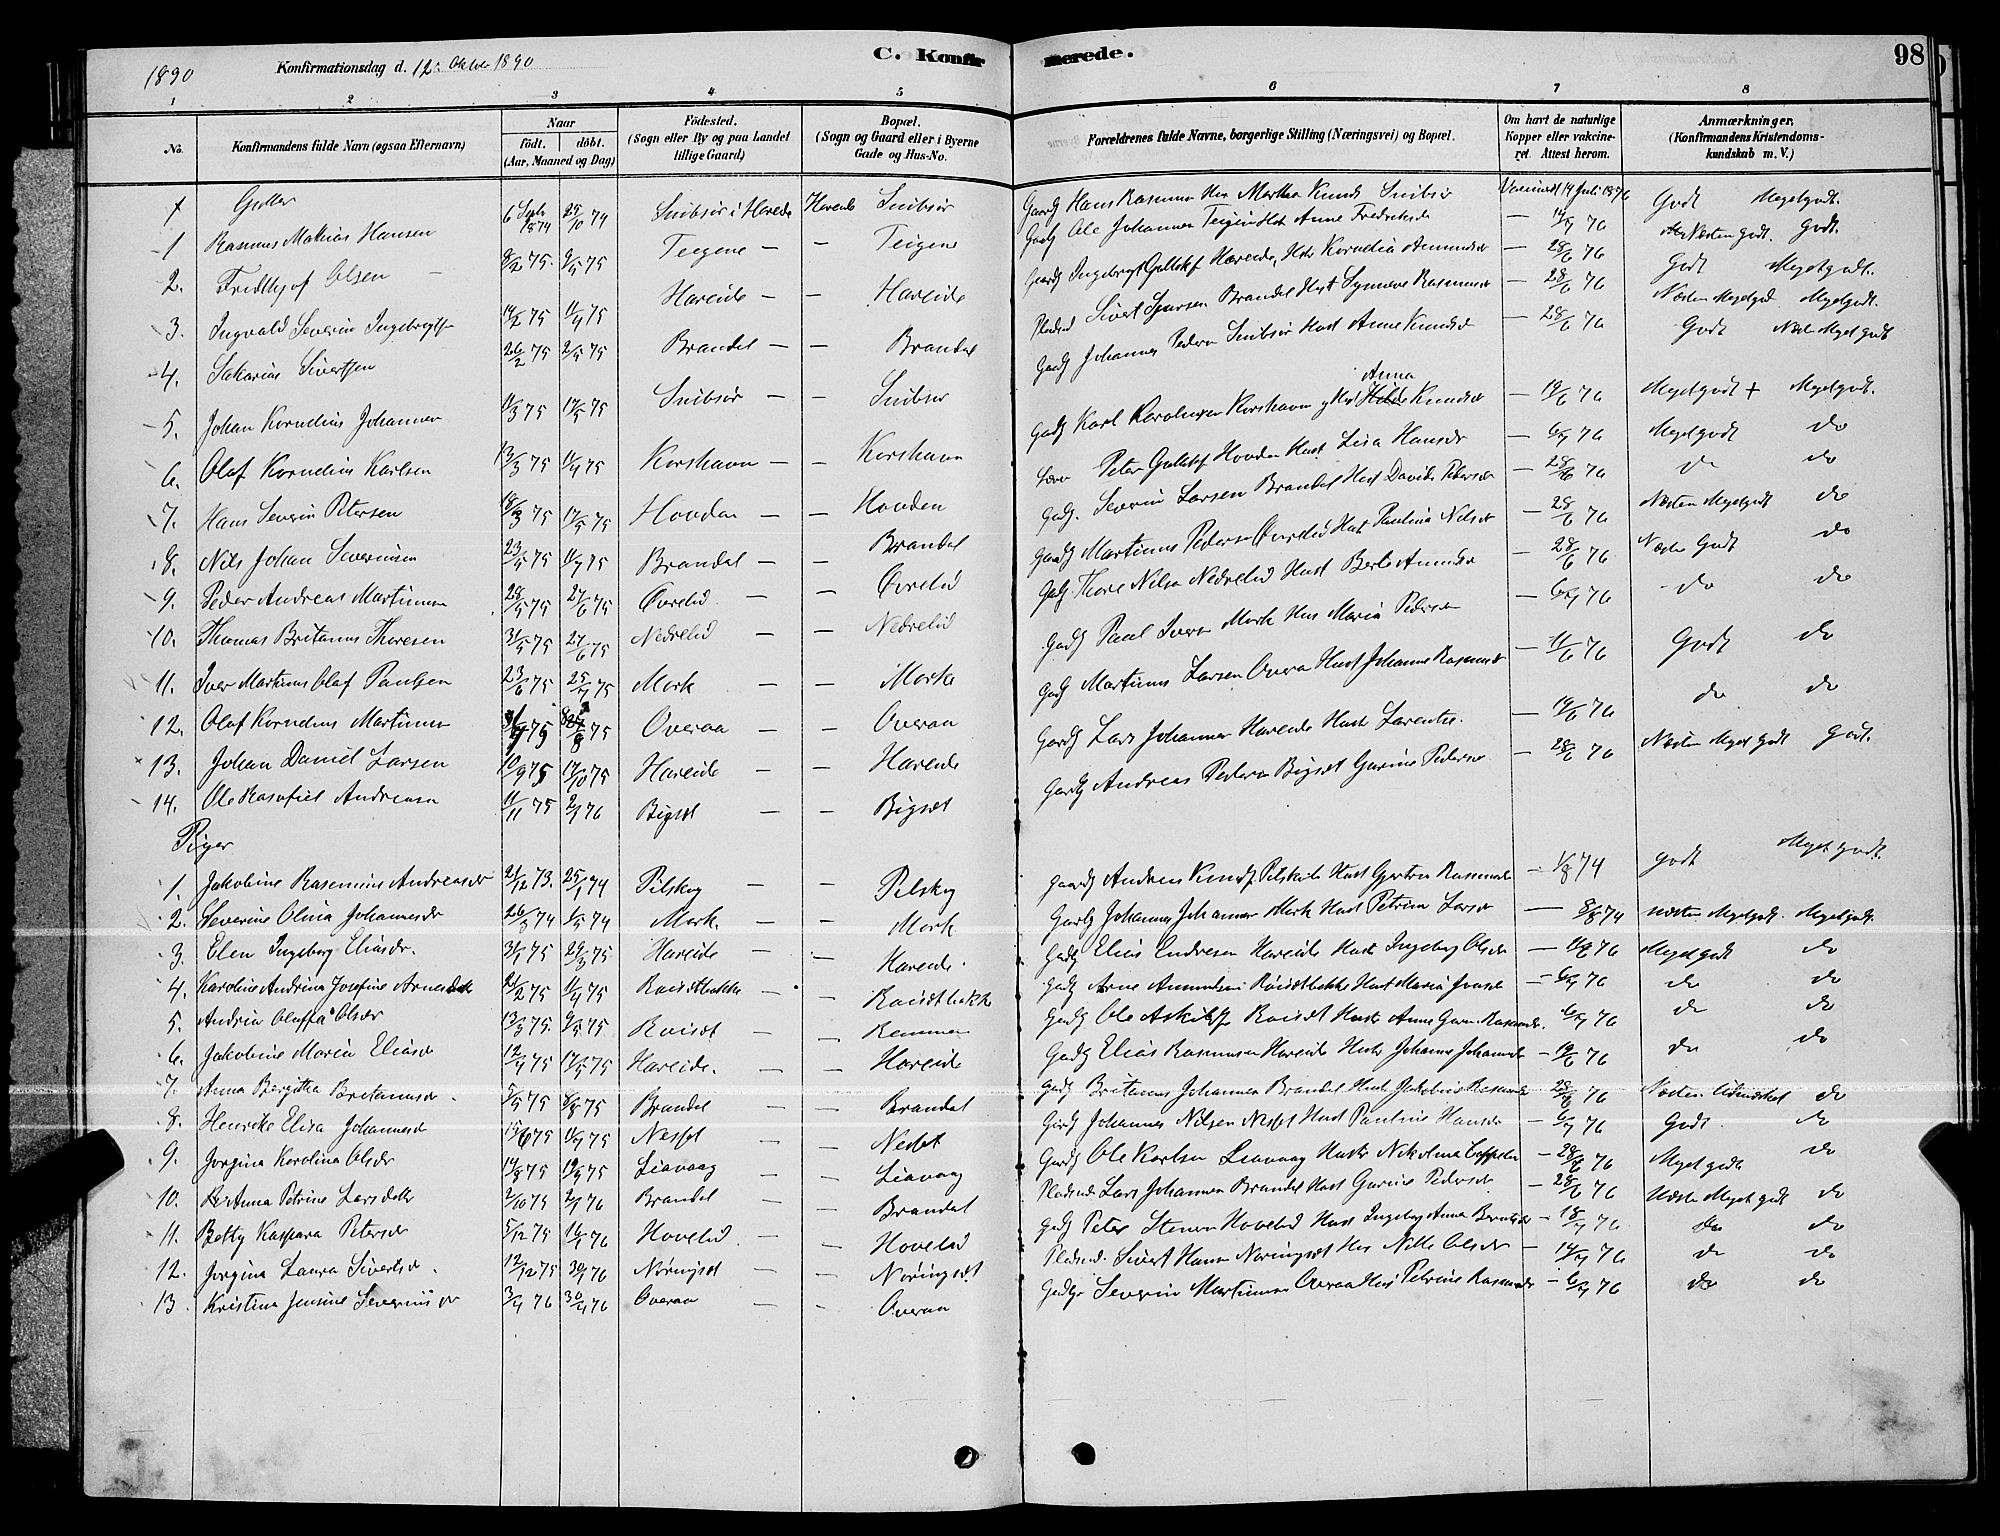 1890
Konfirmationsdag d. 12. Oktober 1890
C. Konfirmerede.
98
1 2 3 4 5 6 7 8
No.
Konfirmandens fulde Navn (ogsaa Efternavn)
Naar
födt. döbt.
(Aar, Maaned og Dag)
Födested.
(Sogn eller By og paa Landet
tillige Gaard)
Bopæl.
(Sogn og Gaard eller i Byerne
Gade og Hus-No.
Forældrenes fulde Navne, borgerlige Stilling (Næringsvei) og Bopæl.
Om havt de naturlige
Kopper eller vakcine-
ret Attest herom.
Anmærkninger,
(Konfirmandens Kristendoms-
kundskab m. V.)
Gutter
1 Rasmus Mathias Hansen 6 Sept 1874 25/10 74 Snibsør i Hareide Hareide Snibsør Gaardb Hans Rasmusen Hus Marthe Knuds Snibsør Vaccineret 14 Juli 1876 Godt Megetgodt.
2. Fredthjof Olsen 8/2 75. 9/5 75 Teigene — — Teigene Gadb Ole Johannesen Teigene Hst Anne Fredriksdr — 14/7 76 Næsten godt. Godt.
3. Ingvald Severin Ingebrigtsen 14/2 75 11/4 75 Hareide — — Hareide Gaardb Ingebrigt Gullaksen Hareide, Hst Kornelia Amundsdr — 28/6 76 Godt Megetgodt.
4. Sakarias Sivertsen 26/2 75 2/5 75 Brandal — — Brandal Pladsmd Sivert Larsen Brandal Hust Synneve Rasmusdr — 28/6 76 Næsten Megetgod Megetgodt.
5. Johan Kornelius Johannesen 11/3 75 17/5 75 Snibsør — — Snibsør Gaardb Johannes Pedersen Snibsør Hust Anne Knudsdr — 28/6 76 Godt Næst Meget godt
6. Olaf Kornelius Karlsen 13/3 75 11/4 75 Korshavn — — Korshavn Gadb Karl Karolusen Korshavn og Hust Anna Knudsdr — 19/6 76 Megetgodt + Megetgodt.
7. Hans Severin Petersen 18/3 75 17/5 75 Hovden — — Hovden Peter Gullaksen Hovden Hust Lisa Hansdr — 6/7 76 Megetgodt do
8. Nils Johan Severinsen 23/5 75 11/7 75 Brandal — — Brandal Gadb. Severin Larsen Brandal Hust Davida Petersdr — 28/6 76 do do
9. Peder Andreas Martinusen 28/5 75 27/6 75 Øvrelid — — Øvrelid Gaardb Martinus Pedersen Øvrelid Hust Pauline Nilsdr — 28/6 76 Næsten Megetgodt do
10. Thomas Britanus Thoresen 31/5 75 27/6 75 Nedrelid — — Nedrelid Gadb Thore Nilsen Nedrelid Hust Berte Amundsdr — 28/6 76 Næsten Godt do
11. Iver Martinus Olaf Paulsen 23/6 75 25/7 75 Mork — — Mork Gadb Paul Iversen Mork Hus Maria Pedersen — 6/7 76 do do
12. Olaf Kornelius Martinusen 75 75 Overaa — — Overaa Gadb Martinus Larsen Overaa Hust Johanne Rasmusdr — 11/6 76 Godt do
13. Johan Daniel Larsen 10/9 75 17/10 75 Hareide — — Hareide Gaardb Lars Johannesen Hareide Hust Larentse. — 19/6 76 do do
14. Ole Rasofiel Andreasen 11/11 75 2/1 76 Bigset — — Bigset Gaardb Andreas Pedersen Bigset Gurine Pedersdr — 28/6 76 Næsten Meget godt Godt.
Piger
1. Jakobine Rasmine Andreasdr 21/12 73. 25/1 74 Pilskog — — Pilskog Gaardb Andreas Knudsen Pilskog Hust Gjertru Rasmusdr — 1/8 74 godt Meget godt.
2. Severine Olina Johannesdr 26/3 74 1/5 74 Mork. — — Mork Gaardb Johannes Johannesen Mork Hust Petrine Larsdr — 8/8 74 næsten Megetgodt. Megetgodt.
3. Elen Ingeborg Eliasdr. 31/1 75 29/3 75 Hareide — — Hareide. Gadb Elias Endresen Hareide Hust Ingeborg Olsdr — 76 Megetgodt do
4. Karoline Andrina Josefine Arnesdatr 21/2 75 11/4 75 Raisetbakke — — Raisetbakk Gadb Arne Amundsen Raisetbakke Hust Maria Jonsdr — 6/7 76 do do
5. Andrea Oluffa Olsdr 13/3 75. 9/5 75 Raiset — — Remmen Gaardb Ole Askilsen Raiset Hust Anne Rasmusdr. — 6/7 76 do do
6. Jakobine Maria Eliasdr 12/4 75 17/5 75 Hareide. — — Hareide Gadb Elias Rasmusen Hareide Hust Johanne Johannesdr — 19/6 76 do do
7. Anna Bergitha Britanusdr. 5/5 75 8/8 75 Brandal — — Brandal Gadb Britanus Johannesen Brandal Hust Jakobine Rasmusdr — 28/6 76 Næsten Udmærket do
8. Henrike Elisa Johannesdr 15/6 75 11/7 75 Nesset — — Nesset Gadb Johannes Nilsen Nesset Hust Pauline Hansdr — 6/7 76 Godt. do
9. Jorgina Karolina Olsdr 14/8 75 19/9 75 Liavaag — — Liavaag Gaardb Ole Karlsen Liavaag Hust Nikoline — 28/6 76 Meget godt do
10. Anna Petrine Larsdatr 2/10 75 2/1 76 Brandal — — Brandal Pladsmd Lars Johannesen Brandal Hust Gurine Pedersdr — 28/6 76 Næsten Meget godt do
11. Betty Kaspara Petersdr 5/12 75 16/1 76 Hovelid. — — Hovelid Gadb Peter Stenersen Hovelid Hust Ingeborg Anna Berntsdr — 18/7 76 do do
12. Jorgina Laura Sivertsdr. 12/12 75 30/1 76 Nøringset — — Nøringset Pladsmd. Sivert Hansen Nøringset Hus Nille Olsdr — 14/7 76 do do
13. Kristina Jensine Severinsdr 3/4 76 30/4 76 Overaa — — Overaa Gadb Severin Martinusen Overaa Hust Petrine Rasmusdr — 6/7 76 do do